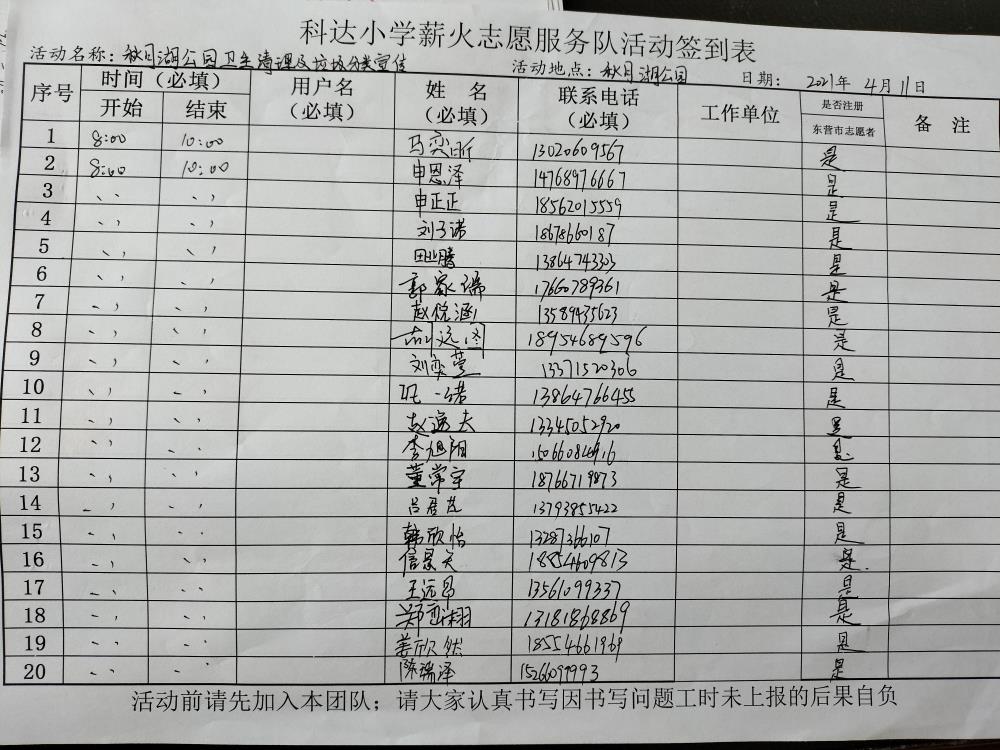 科达小学薪火志愿服务队活动签到表
活动名称：秋月湖公园卫生清理及垃圾分类宣传 活动地点：秋月湖公园 日期： 2021年 4月 11日
序号 时间（必填） 用户名（必填） 姓 名（必填） 联系电话（必填） 工作单位 是否注册 备 注
开始 结束 东营市志愿者
1 8:00 10:00 马奕昕 13020609567 是
2 8:00 10:00 申恩泽 14768976667 是
3 〃 〃 申正正 18562015559 是
4 〃 〃 刘子诺 18678660187 是
5 〃 〃 田业腾 13864743303 是
6 〃 〃 郭家瑞 17660789361 是
7 〃 〃 赵悦涵 13589435623 是
8 〃 〃 远图 18954689596 是
9 〃 〃 刘奕萱 13371520306 是
10 〃 〃 一诺 13864766455 是
11 〃 〃 赵逸夫 13345052920 是
12 〃 〃 李旭阳 是
13 〃 〃 董常宇 18766719873 是
14 〃 〃 吕君 13793855422 是
15 〃 〃 韩欣怡 13287366107 是
16 〃 〃 信景天 18854609813 是
17 〃 〃 王远昂 13561099337 是
18 〃 〃 郑奕翔 13181868869 是
19 〃 〃 姜欣然 18554661969 是
20 〃 〃 陈瑞泽 15266099993 是
活动前请先加入本团队；请大家认真书写因书写问题工时未上报的后果自负